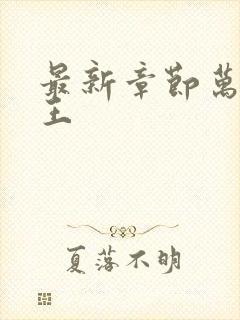 最新章節萬
主
夏落不明